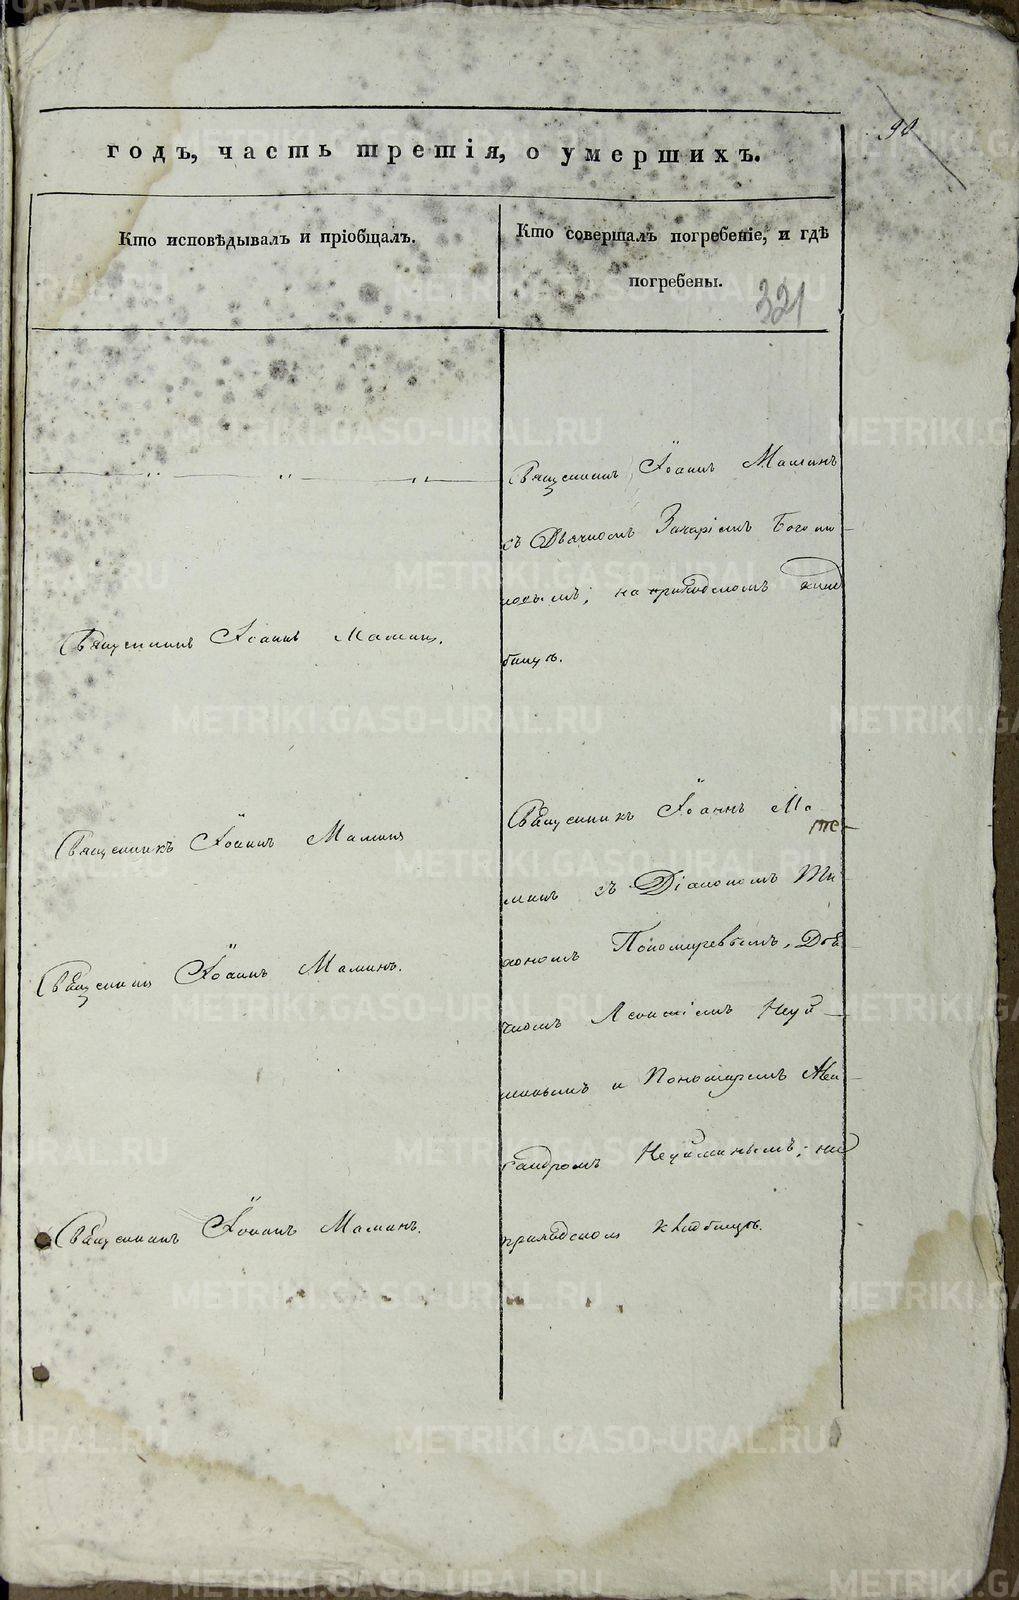 90
годъ, часть третія, о умершихъ.
Кто исповѣдывалъ и пріобщалъ.
Кто совершалъ погребеніе, и гдѣ
погребены.
321
Священникъ Іоаннъ Маминъ
съ Дьячкомъ Захаріемъ Богомо-
ловымъ; на приходскомъ клад
бищѣ.
Священникъ Іоаннъ Маминъ.
Священникъ Іоаннъ Маминъ
Священникъ Іоаннъ Маминъ.
Священникъ Іоаннъ Маминъ.
Священникъ Іоаннъ Ма
минъ съ Діакономъ
Пономаревымъ, Дья
чкомъ Леонтіемъ Неуй-
минымъ и Пономаремъ
сандромъ Неуйминымъ; на
приходскомъ кладбищѣ.
METRIKI.GASO-URAL.RU